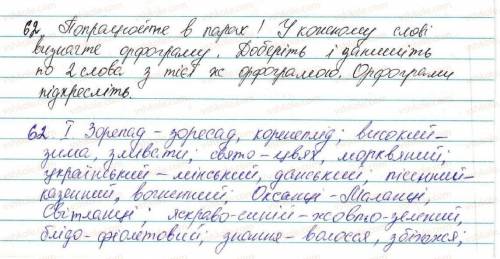 62. Попрацюйте в парах! У кожному слові
визначте орфограму. Доберіть і запишіть
по 2 слова з тією ж орфограмою. Орфограми
підкресліть.
62 I Зорепад - зоресад, коренеплід; високий -
зима, зливати; свято - цвях, морквяний;
український - мінський, данський; пісенний -
казенний, вогненний; Оксанці - Маланці,
Світланці; яскраво-синій - жовто-зелений,
блідо-фіолетовий; знання - волосся, збіжжя;